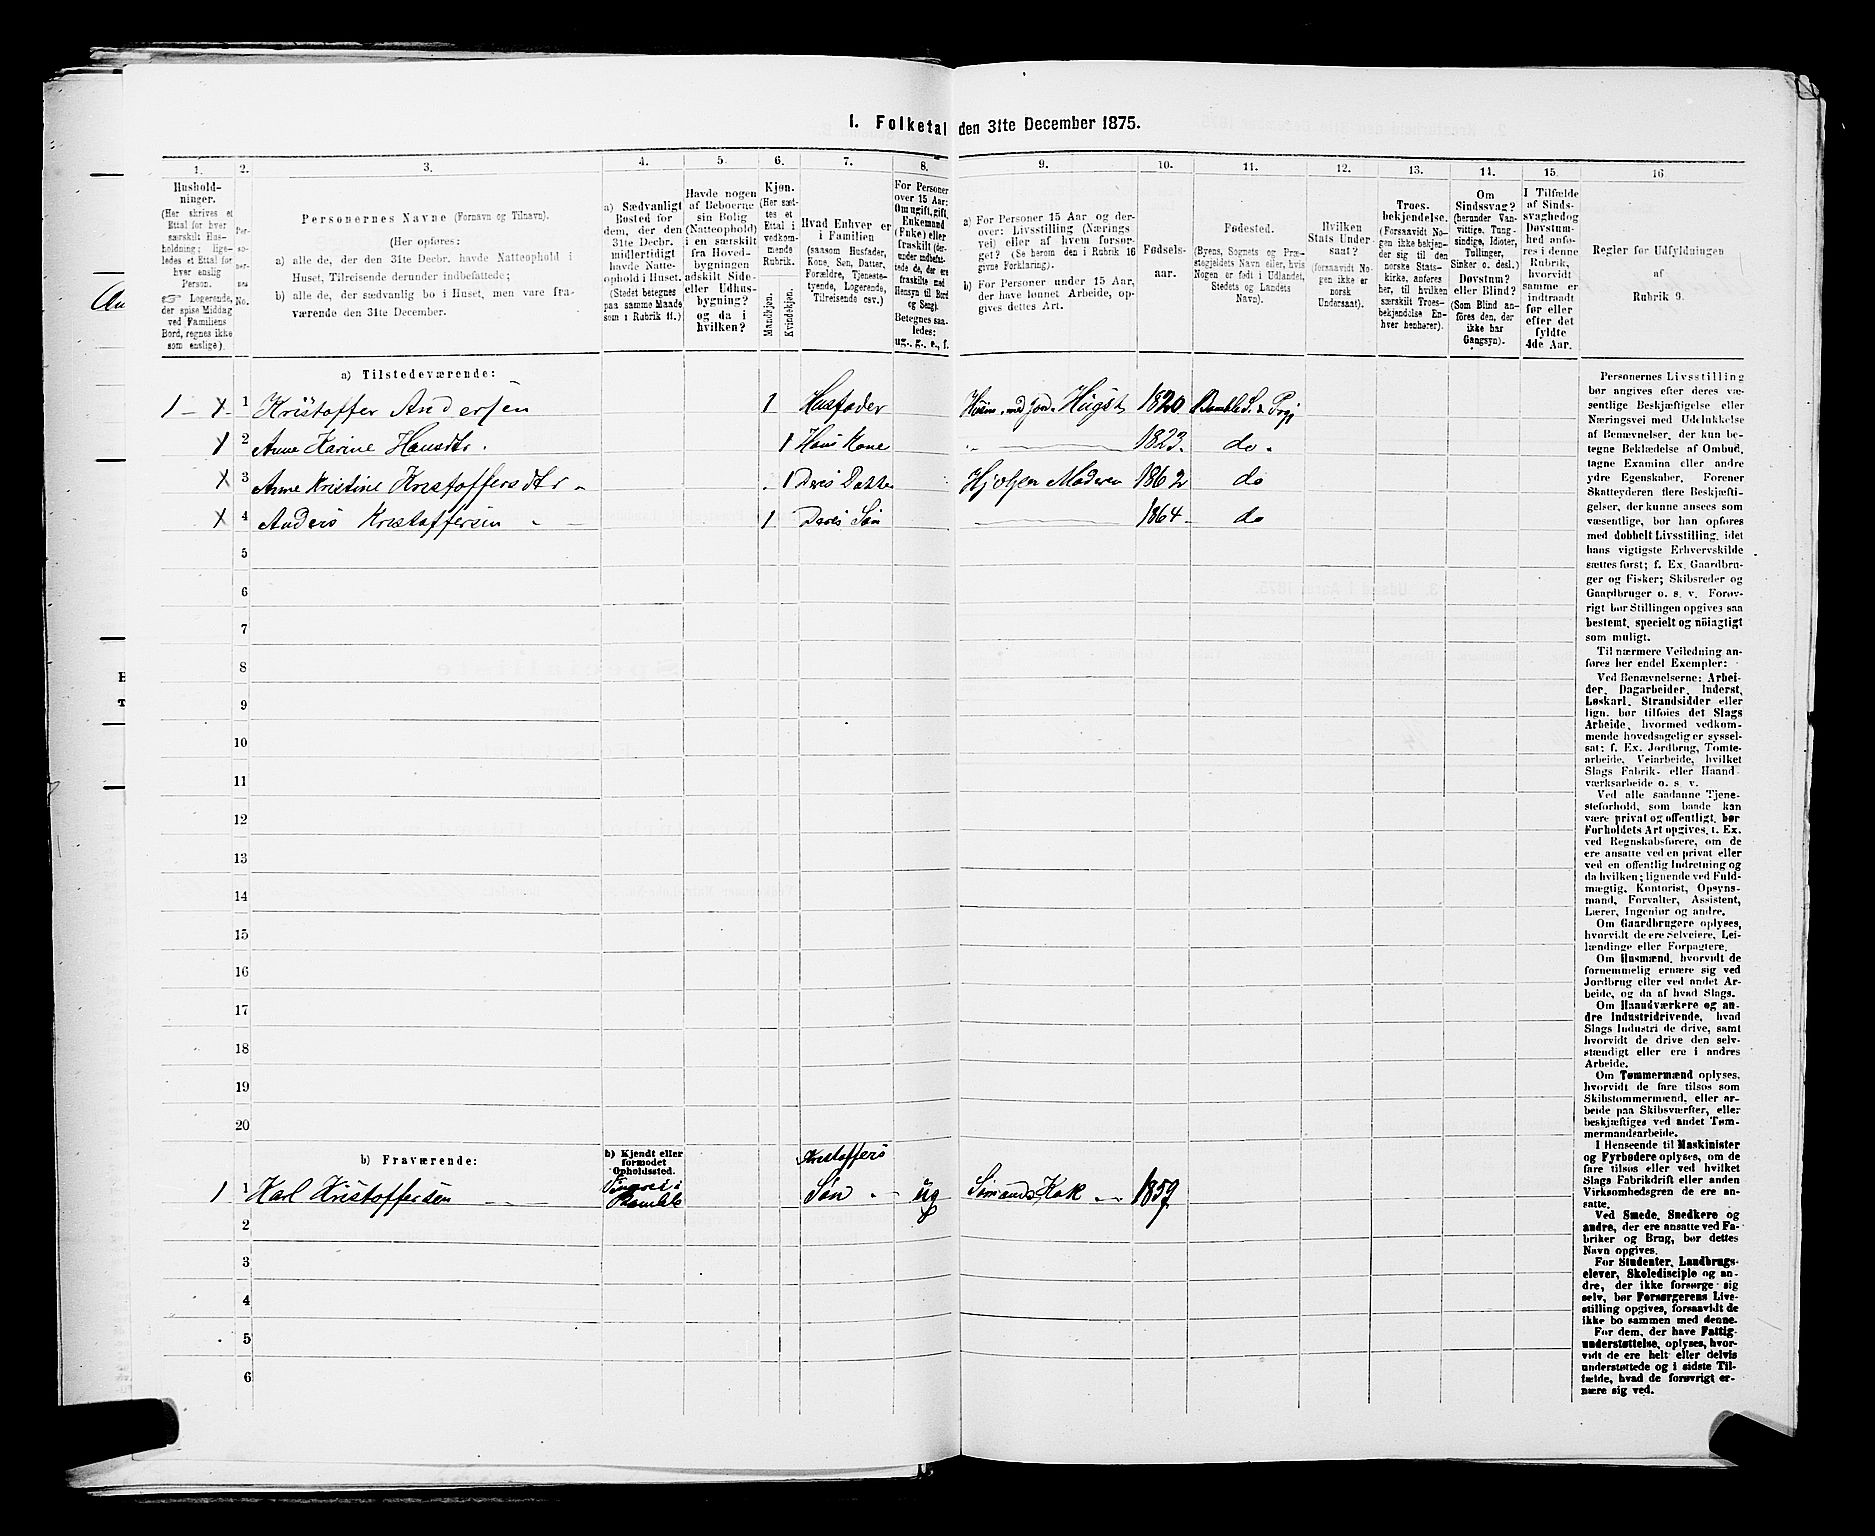 1. Folketal den 31te December 1875.
1.
Hushold-
ninger.
(Her skrives et
Ettal for hver
særskilt Hus-
holdning; lige-
ledes et Ettal for
hver enslig
Person.
Logerende,
der spise Middag
ved Familiens
Bord, regnes ikke
som enslige).
2.
Per-
so-
ner-
nes
No.
3.
Personernes Navne (Fornavn og Tilnavn).
(Her opføres:
a) alle de, der den 31te Decbr. havde Natteophold i
Huset, Tilreisende derunder indbefattede;
b) alle de, der sædvanlig bo i Huset, men vare fra-
værende den 31te December.
4.
a) Sædvanligt
Bosted for
dem, der den
31te Decbr.
midlertidigt
havde Natte-
ophold i Huset.
(Stedet betegnes
paa samme Maade
som i Rubrik 11.)
5.
Havde nogen
af Beboerne
sin Bolig
(Natteophold)
i en særskilt
fra Hoved-
bygningen
adskilt Side-
eller Udhus-
bygning?
og da i
hvilken?
6.
Kjøn.
(Her sæt-
tes et
Ettal i
vedkom-
mende
Rubrik.
Mandkjøn.
Kvindekjøn.
7.
Hvad Enhver er
i Familien
(saasom Husfader,
Kone, Søn, Datter,
Forældre, Tjeneste-
tyende, Logerende,
Tilreisende osv.)
8.
For Personer
over 15 Aar:
Om ugift, gift,
Enkemand
(Enke) eller
fraskilt (der-
under indbefat-
tede de, der ere
fraskilte med
Hensyn til Bord
og Seng).
Betegnes saa-
ledes:
ug., g., e., f.
9.
a) For Personer 15 Aar og der-
over: Livsstilling (Nærings
vei) eller af hvem forsør-
get? (Se herom den i Rubrik 16
givne Forklaring).
b) For Personer under 15 Aar,
der have lønnet Arbeide, op-
gives dettes Art.
10.
Fødsels-
aar.
11.
Fødested.
(Byens, Sognets og Præ-
stegjeldets Navn eller, hvis
Nogen er født i Udlandet,
Stedets og Landets
Navn).
12.
Hvilken
Stats Under-
saat?
(forsaavidt No-
gen ikke er
norsk
Undersaat).
13.
Troes-
bekjendelse.
(Forsaavidt No-
gen ikke bekjen-
der sig til den
norske Stats-
kirke, anføres
her, til hvilken
særskilt Troes-
bekjendelse En-
hver henhører).
14.
Om
Sindssvag?
(herunder Van-
vittige, Tung-
sindige, Idioter,
Tullinger,
Sinker o. desl.)
Døvstum?
eller Blind?
(Som Blind an-
føres den, der
ikke har
Gangsyn).
15.
I Tilfælde
af Sinds-
svaghed og
Døvstum-
hed anfø-
res i denne
Rubrik,
hvorvidt
samme er
indtraadt
før eller
efter det
fyldte
4de Aar.
16
Regler for Udfyldningen
af
Rubrik 9.
a) Tilstedeværende:
1 1 Kristoffer Andersen 1 Husfader 1820
2 Anne Karine Hansdtr. 1 Hans Kone 1823. do.
3 Anne Kristine Kristoffersdtr 1 Deres 1862 do
4 Anders Kristoffersen 1 Deres Søn 1864 do
5
6
7
8
9
10
11
12
13
14
15
16
17
18
19
20
b) Fraværende:
b) Kjendt eller
formodet
Opholdssted.
1 1 Karl Kristoffersen Bamble Kristoffers Søn ug Kok 1859
2
3
4
5
6
Personernes Livsstilling
bør angives efter deres væ-
sentlige Beskjæftigelse eller
Næringsvei med Udelukkelse
af Benævnelser, der kun be-
tegne Beklædelse af Ombud,
tagne Examina eller andre
ydre Egenskaber. Forener
Skatteyderen flere Beskjæfti-
gelser, der kunne ansees som
væsentlige, bør han opføres
med dobbelt Livsstilling, idet
hans vigtigste Erhvervskilde
sættes først; f. Ex. Gaardbru-
ger og Fisker; Skibsreder og
Gaardbruger o. s. v. Forøv-
rigt bør Stillingen opgives saa
bestemt, specielt og nøiagtigt
som muligt.
Til nærmere Veiledning an-
føres her endel Exempler:
Ved Benævnelserne: Arbei-
der, Dagarbeider, Inderst,
Løskarl, Strandsidder eller
lign. bør tilføies det Slags
Arbeide, hvormed vedkom-
mende hovedsagelig er syssel-
sat; f. Ex. Jordbrug, Tomte-
arbeide, Veiarbeide, hvilket
Slags Fabrik- eller Haand-
værksarbeide o. s. v.
Ved alle saadanne Tjene-
steforhold, som baade kan
være privat og offentligt, bør
Forholdets Art opgives, t. Ex.
ved Regnskabsførere, om de
ere ansatte ved en privat eller
ved en offentlig Indretning og
da hvilken; lignende ved Fuld-
mægtig, Kontorist, Opsyns-
mand, Forvalter, Assistent,
Lærer, Ingeniør og andre.
Om Gaardbrugere oplyses,
hvorvidt de ere Selveiere, Lei-
lændinge eller Forpagtere.
Om Husmænd, hvorvidt de
fornemmelig ernære sig ved
Jordbrug eller ved andet Ar-
beide, og da af hvad Slags.
Om Haandværkere og an-
dre Industridrivende, hvad
Slags Industri de drive, samt
hvorvidt de drive den selv-
stændigt eller ere i andres
Arbeide.
Om Tømmermænd oplyses,
hvorvidt de fare tilsøs som
Skibstømmermænd, eller ar-
beide paa Skibsværfter, eller
beskjæftiges ved andet Tøm-
mermandsarbeide.
I Henseende til Maskinister
og Fyrbødere oplyses, om de
fare tilsøs eller ved hvilket
Slags Fabrikdrift eller anden
Virksomhedsgren de ere an-
satte.
Ved Smede, Snedkere og
andre, der ere ansatte ved Fa-
briker og Brug, bør dettes
Navn opgives.
For Studenter, Landbrugs-
elever, Skoledisciple og an-
dre, der ikke forsørge sig
selv, bør Forsørgerens Live-
stilling opgives, forsaavidt de
ikke bo sammen med denne.
For dem, der have Fattig-
understøttelse, oplyses, hvor-
vidt de ere helt eller delvis
understøttede og i sidste Til-
fælde, hvad de forøvrigt er-
nære sig ved.